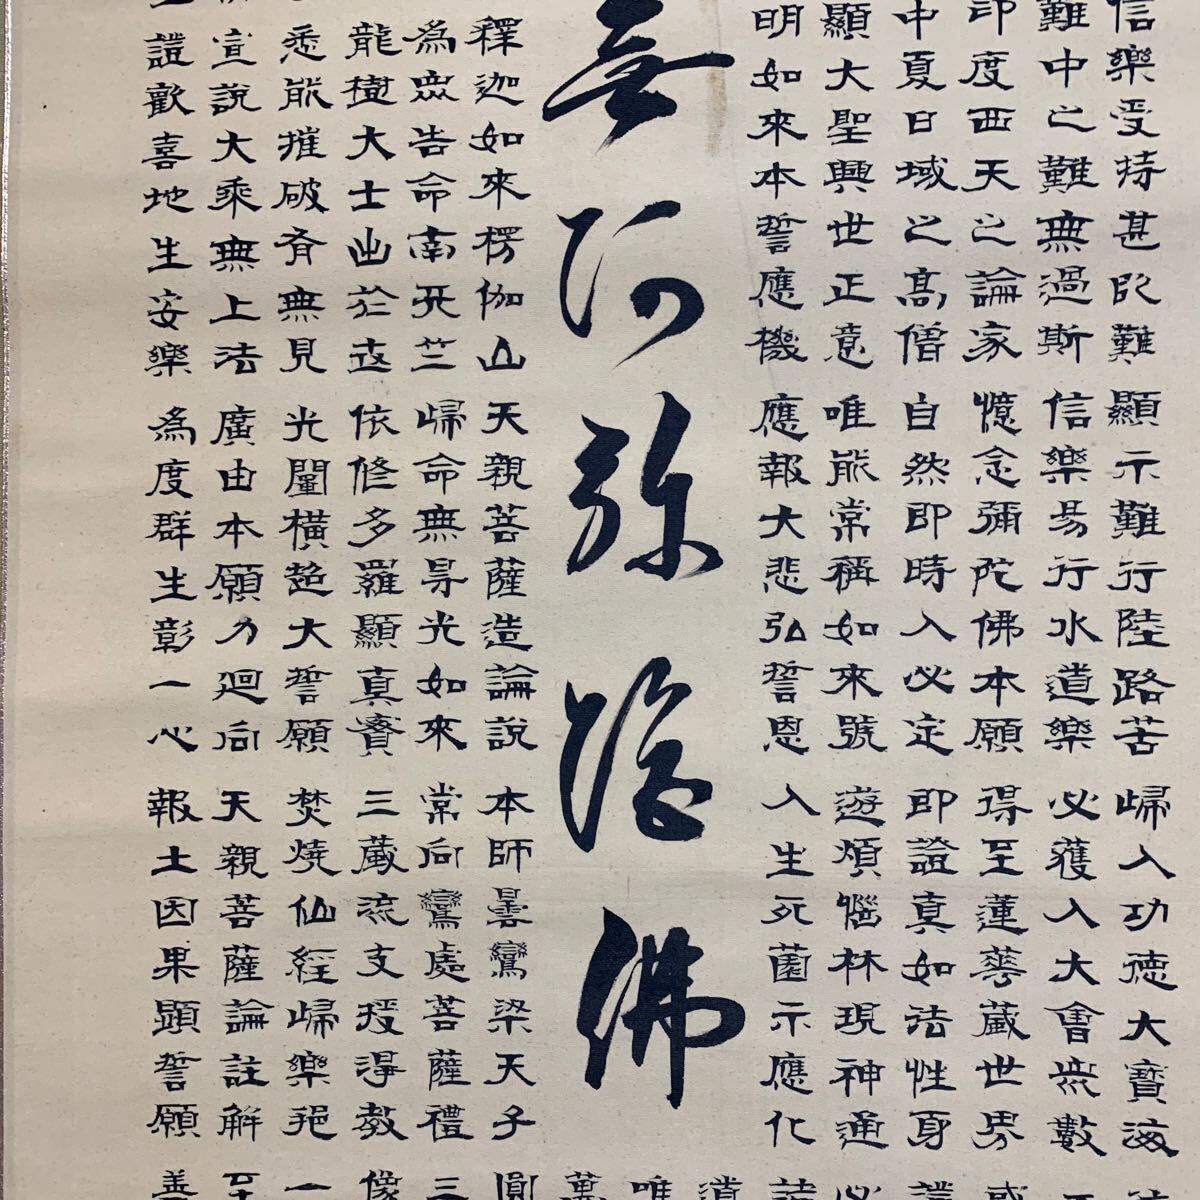 信樂受持甚以難 顯示難行陸路苦 歸入功德大寶海
難中之難無過斯 信樂易行水道樂 必獲入大會衆數
印度西天之論家 憶念彌陀佛本願 得至蓮華藏世界 或
中夏日域之高僧 自然即時入必定 即證真如法性身 證
顯大聖興世正意 唯能常稱如來號 遊煩惱林現神通 必
明如來本誓應機 應報大悲弘誓恩 入生死薗示應化 諸
道
無阿彌陀佛
唯
萬
釋迦如來楞伽山 天親菩薩造論說 本師曇鸞梁天子 圓
爲衆告命南天竺 歸命無㝵光如來 常向鸞處菩薩禮 三
龍樹大士出於世 依修多羅顯真實 三藏流支授淨教 像
悉能摧破有無見 光闡橫超大誓願 焚燒仙經歸樂邦 一
宣說大乘無上法 廣由本願力廻向 天親菩薩論註解 至
證歡喜地生安樂 爲度群生彰一心 報土因果顯誓願 善